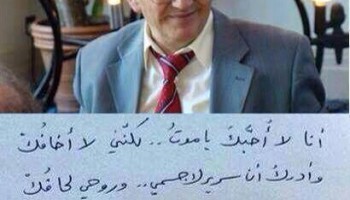 أنا لا أُحبُّكَ يا موتُ.. لكنّني لا أخافُكَ
وأدركُ أنّ سريركَ جسمي.. وروحي لحافُكَ